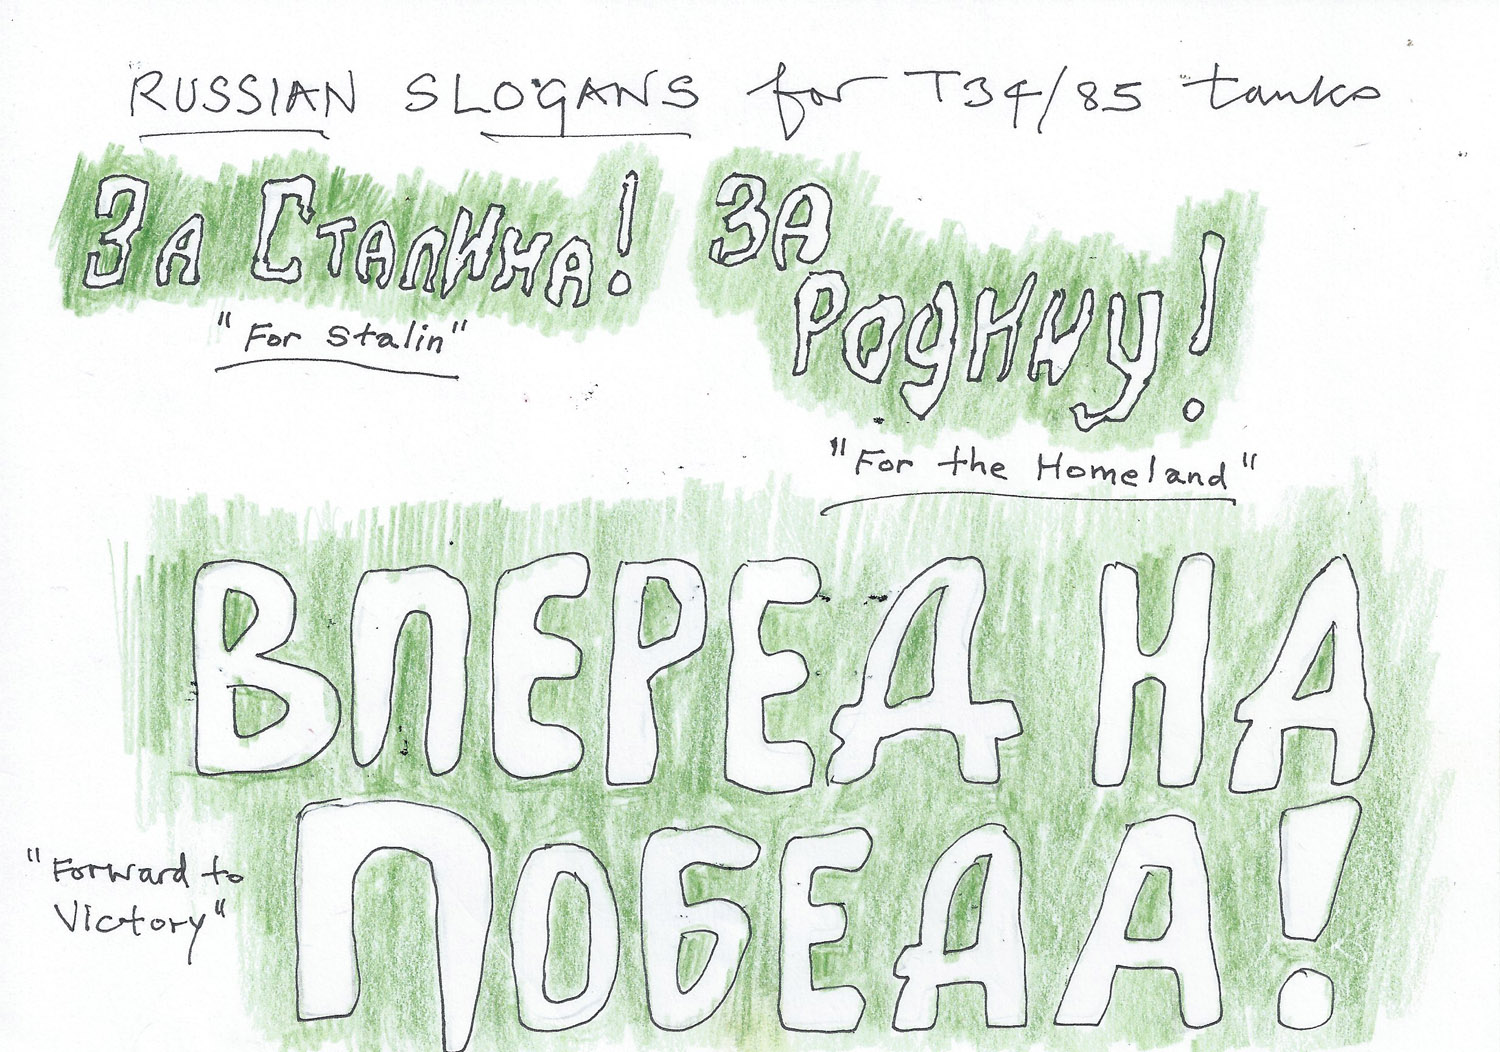 RUSSIAN SLOGANS for T34/85 tanks
За Сталина!
"For Stalin"
ЗА
Родину!
"For the Homeland"
ВПЕРЕД НА
ПОБЕДА!
"Forward to
Victory"